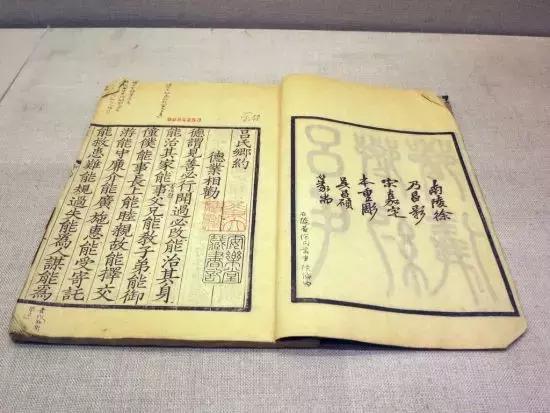 南陵徐
乃昌影
宋嘉定
本重彫
吳昌碩
篆耑
呂氏鄉約
德業相勸
德謂見善必行聞過必改能治其身
能治其家能事父兄能教子弟能御
僮僕能事長上能睦親故能擇交
游能守廉介能廣施惠能受寄託
能救患難能規過失能為謀能為
安樂堂
藏書記